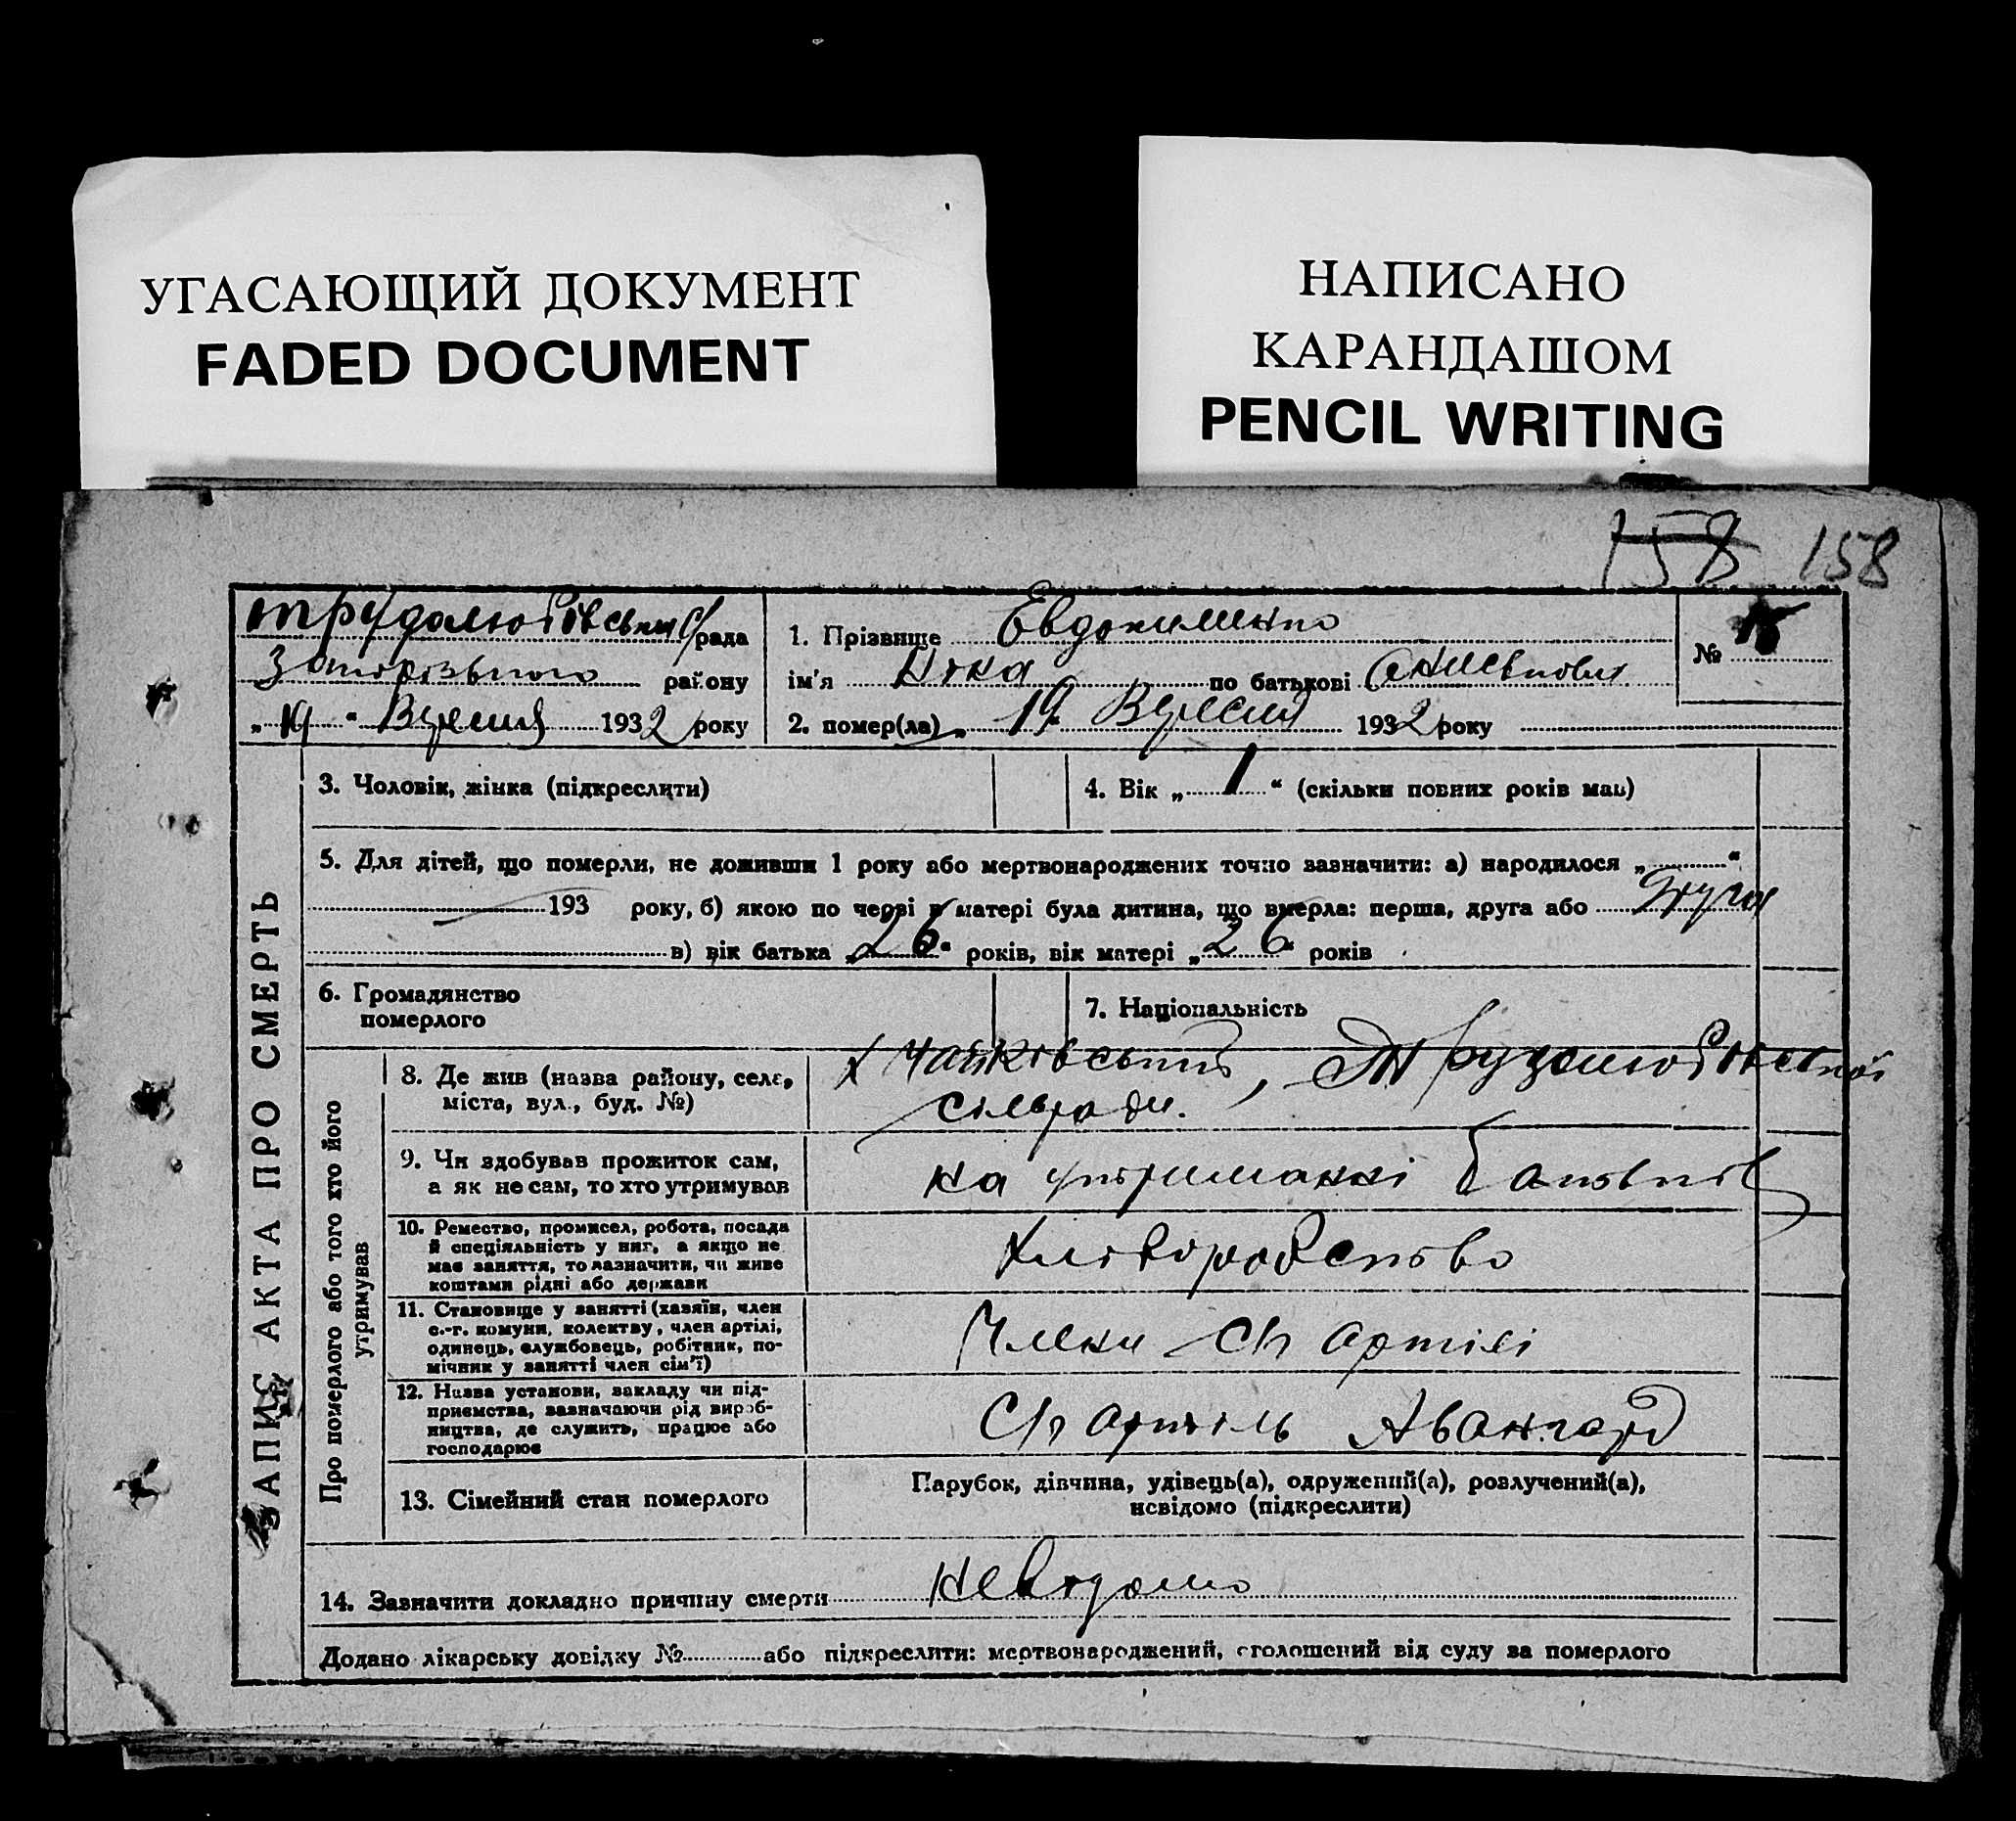 УГАСАЮЩИЙ ДОКУМЕНТ
FADED DOCUMENT
НАПИСАНО
КАРАНДАШОМ
PENCIL WRITING
158 158
рада
району
„ 19 “ Вересня 1932 року
1. Прізвище Евдокименко
ім'я по батькові
№ 15
2. помер(ла) „ 19 Вересня 1932 року
ЗАПИС АКТА ПРО СМЕРТЬ
3. Чоловік, жінка (підкреслити)
4. Вік „ 1 “ (скільки повних років мав)
5. Для дітей, що померли, не доживши 1 року або мертвонароджених точно зазначити: а) народилося „ “
193 року, б) якою по черзі в матері була дитина, що вмерла: перша, друга або друга
в) вік батька „ 26 “ років, вік матері „ 26 “ років
6. Громадянство
померлого
7. Національність
Про померлого або того хто його
утримував
8. Де жив (назва району, село,
міста, вул., буд. №)
х Чайковський,
сільради.
9. Чи здобував прожиток сам,
а як не сам, то хто утримував
на утриманні батьків
10. Ремество, промисел, робота, посада
й спеціяльність у ниг, а якщо не
має заняття, то зазначити, чи живе
коштами рідні або держави
Хліборобство
11. Становище у занятті (хазяїн, член
с.-г. комуни, колектву, член артілі,
одинець, службовець, робітник, по-
мічник у занятті член сім'ї)
Члени Сг артілі
12. Назва установи, закладу чи під-
приємства, зазначаючи рід вироб-
ництва, де служить, працює або
господарює
Сг артіль Авангард
13. Сімейний стан померлого
Парубок, дівчина, удівець(а), одружений(а), розлучений(а),
невідомо (підкреслити)
14. Зазначити докладно причину смерти невідомо
Додано лікарську довідку № або підкреслити: мертвонароджений, оголошений від суду за померлого